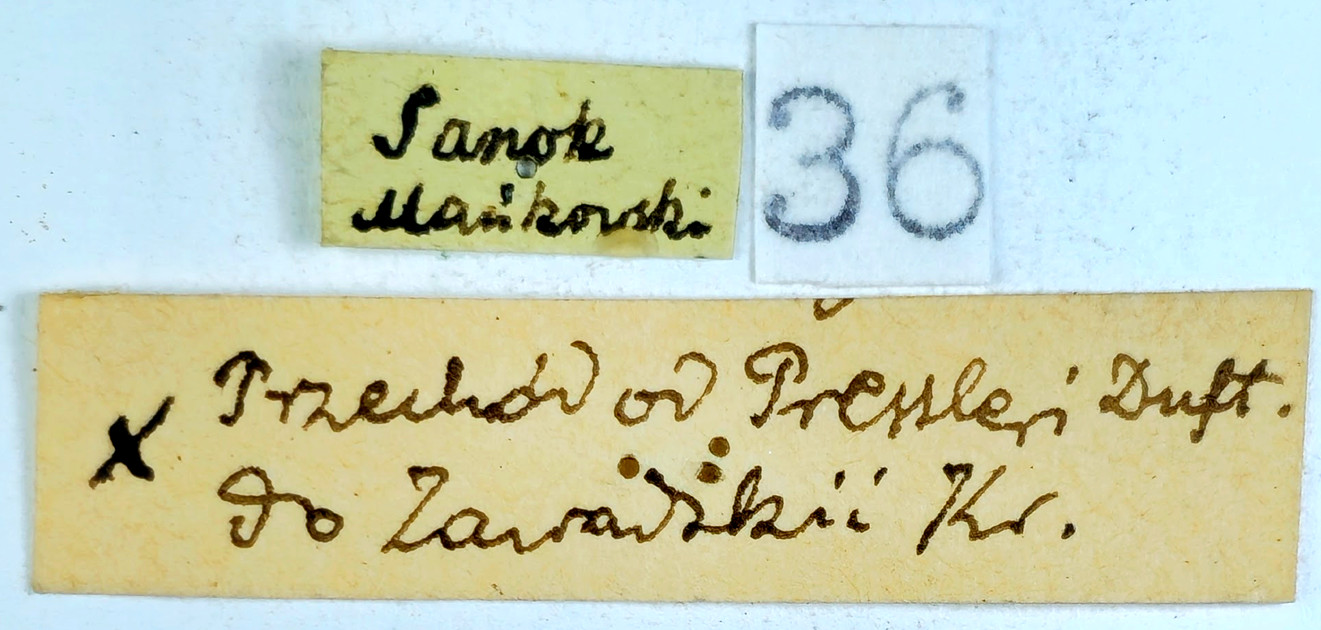 Sanok
Mańkowski
36
x Przechód od Pressleri Duft.
do Zawadzkii Kr.